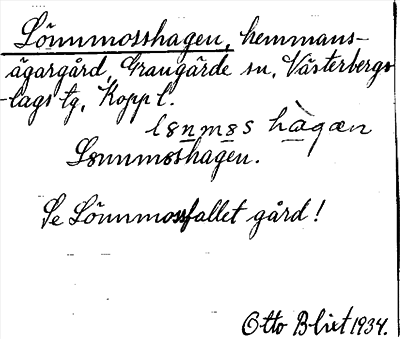 Lönnmosshagen, hemmans-
ägargård, Grangärde sn, Västerbergs
-lags tg, Kopp l.
lsnmss hàgæn
Lönnmosshagen.
Se Lönnmossfallet gård!
Otto Blixt 1934.